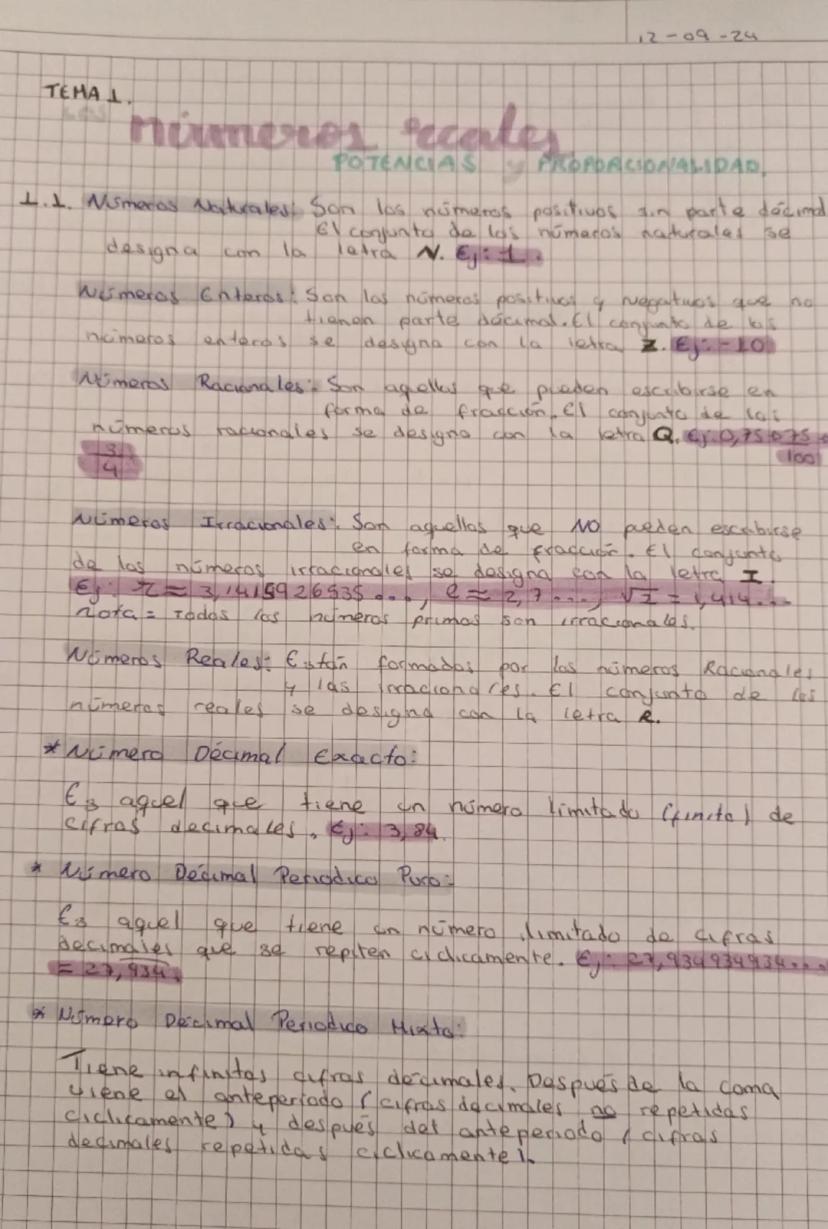 12-09-24
TEMA 1.
Los
números reales
POTENCIAS y PROPORCIONALIDAD.
1.1. Números Naturales: Son los números positivos sin parte décimal
El conjunto de los números naturales se
designa con la letra N. Ej: 1.
Números Enteros: Son los números positivos y negativos que no
tienen parte décimal. El conjunto de los
números enteros se designa con la letra Z. Ej: -10
Números Racionales: Son aquellos que pueden escribirse en
forma de fracción. El conjunto de los
números racionales se designa con la letra Q. Ej: 0,75 o 75/100 o
3/4
Números Irracionales: Son aquellos que NO pueden escribirse
en forma de fracción. El conjunto
de los números irracionales se designa con la letra I.
Ej: π ≈ 3,1415926535..., e ≈ 2,7..., √2 = 1,414...
Nota = Todos los números primos son irracionales.
Números Reales: Están formados por los números Racionales
y las irracionales. El conjunto de los
números reales se designa con la letra R.
* Número Décimal Exacto:
Es aquel que tiene un número limitado (finito) de
cifras decimales. Ej: 3,84
* Número Décimal Periodico Puro:
Es aquel que tiene un número limitado de cifras
decimales que se repiten ciclicamente. Ej: 27,934934934...
= 27,934.
* Número Décimal Periodico Mixto:
Tiene infinitas cifras décimales. Después de la coma
viene el anteperiodo (cifras décimales no repetidas
ciclicamente) y después del anteperiodo (cifras
decimales repetidas ciclicamente).